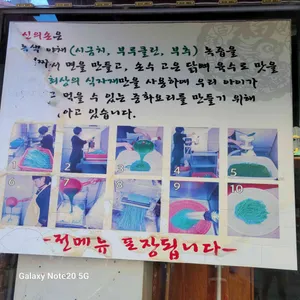 신의손은
녹색 야채 (시금치, 부루클린, 부추) 녹즙을
면을 만들고, 손수 고은 닭뼈 육수로 맛을
최상의 식자재만을 사용하며 우리 아이가
먹을 수 있는 중화요리를 만들기 위해
있습니다.
1 2 3 4 5
6 7 8 9 10
-전메뉴 포장됩니다-
Galaxy Note20 5G